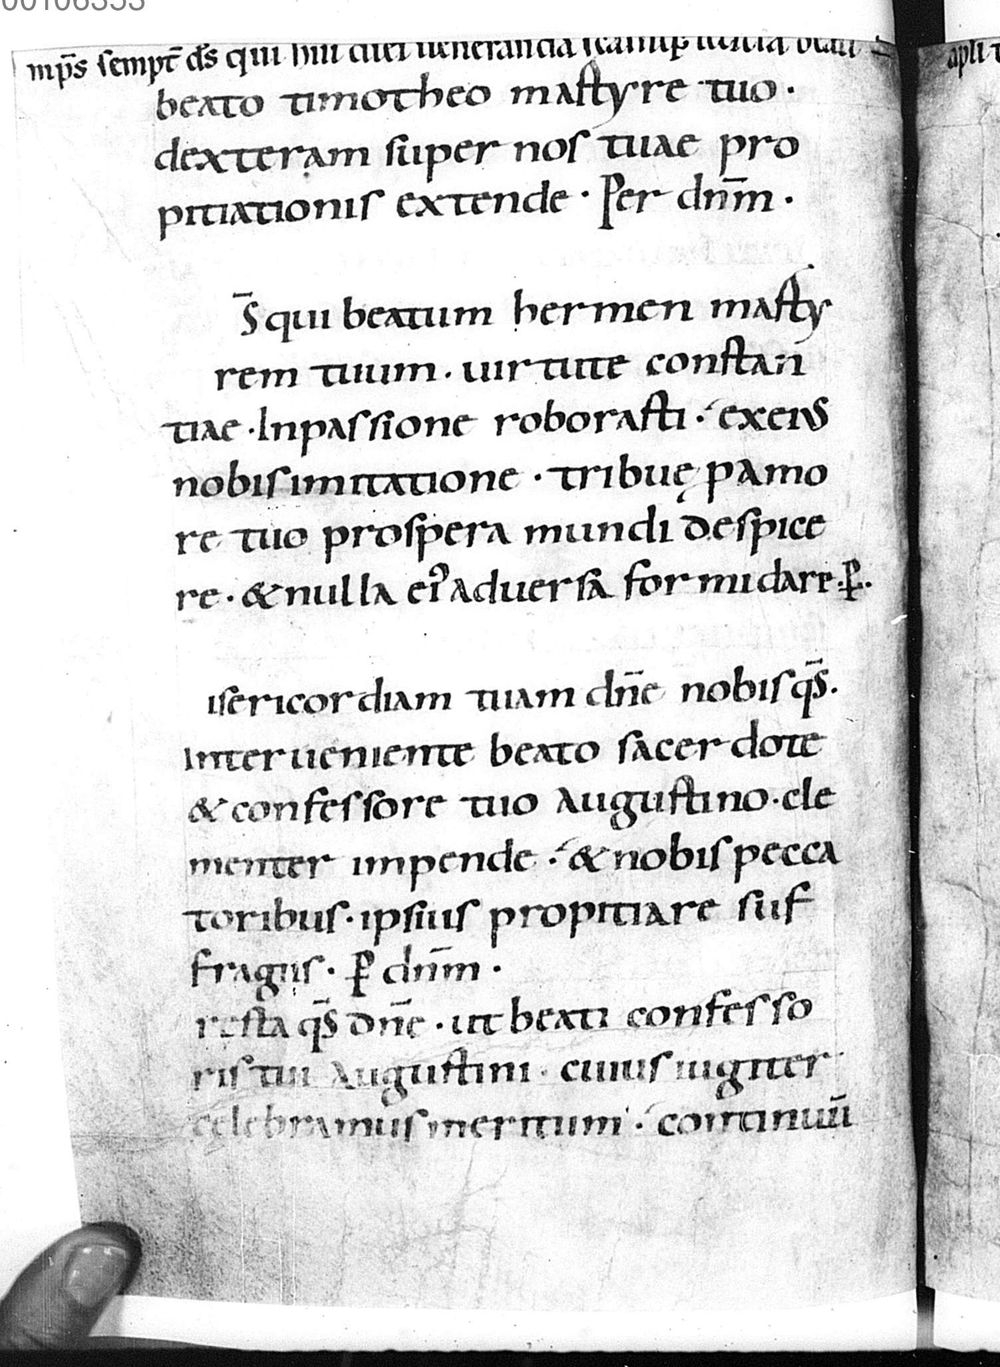 00106353
mp̄s sempt̄ d̄s qui
beato timotheo martyre tuo ·
dexteram super nos tuae pro
pitiationis extende · Per dn̄m ·
S̄ qui beatum hermen marty
rem tuum · uirtute constan
tiae · Inpassione roborasti · exeius
nobis imitatione · tribuę p amo
re tuo prospera mundi despice
re · & nulla ei᾽ aduersa formidare · P̱ ·
isericordiam tuam dn̄e nobis q̄s ·
Interueniente beato sacerdote
& confessore tuo augustino · cle
menter impende · & nobis pecca
toribus · ipsius propitiare suf
fragiis · P̱ dn̄m ·
resta q̄s dn̄e · ut beati confesso
ris tui Augustini · cuius iugiter
celebramus meritum · continuū